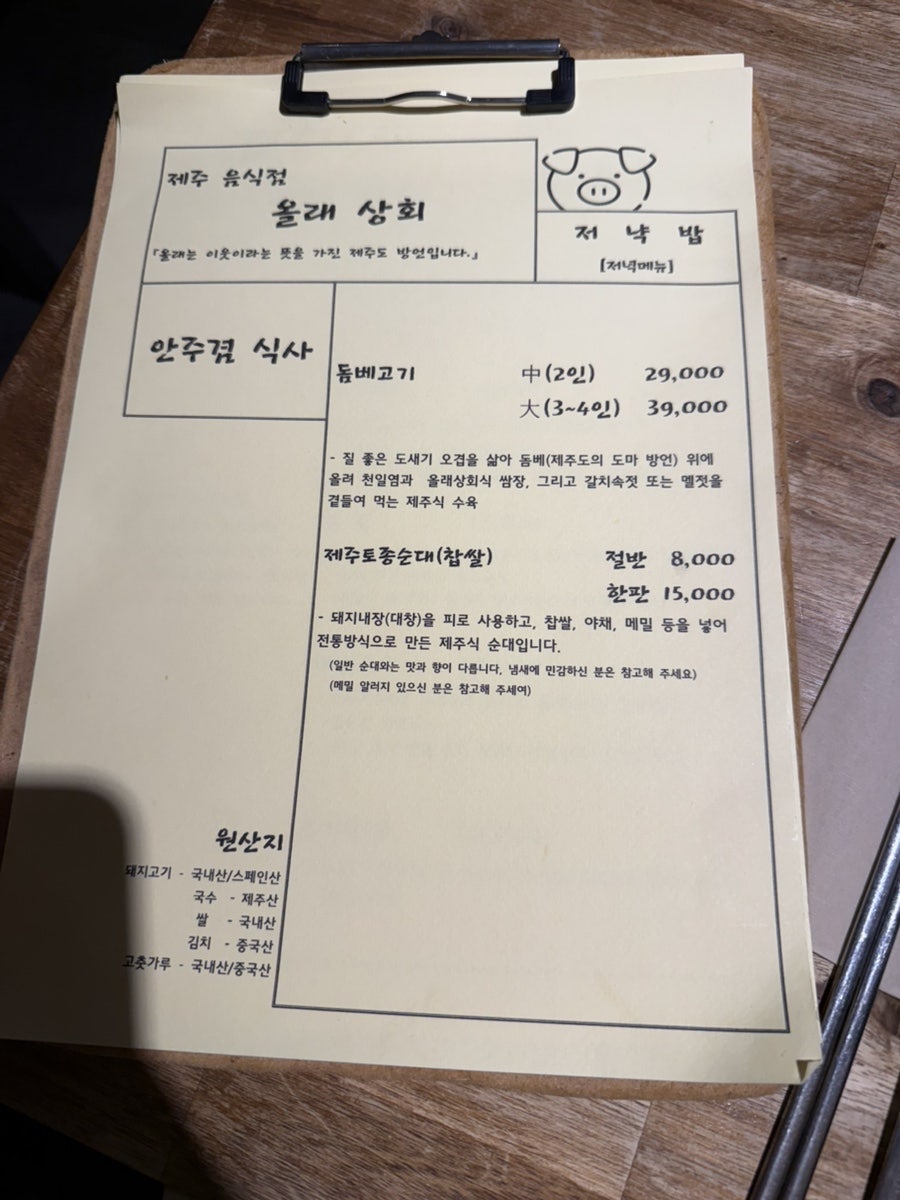 제주 음식점
올래 상회
「올래는 이웃이라는 뜻을 가진 제주도 방언입니다.」
저 냑 밥
[저녁메뉴]
안주겸 식사
돔베고기 中(2인) 29,000
大(3~4인) 39,000
- 질 좋은 도새기 오겹을 삶아 돔베(제주도의 도마 방언) 위에
올려 천일염과 올래상회식 쌈장, 그리고 갈치속젓 또는 멜젓을
곁들여 먹는 제주식 수육
제주토종순대(찹쌀) 절반 8,000
한판 15,000
- 돼지내장(대창)을 피로 사용하고, 찹쌀, 야채, 메밀 등을 넣어
전통방식으로 만든 제주식 순대입니다.
(일반 순대와는 맛과 향이 다릅니다, 냄새에 민감하신 분은 참고해 주세요)
(메밀 알러지 있으신 분은 참고해 주세여)
원산지
돼지고기 - 국내산/스페인산
국수 - 제주산
쌀 - 국내산
김치 - 중국산
고춧가루 - 국내산/중국산